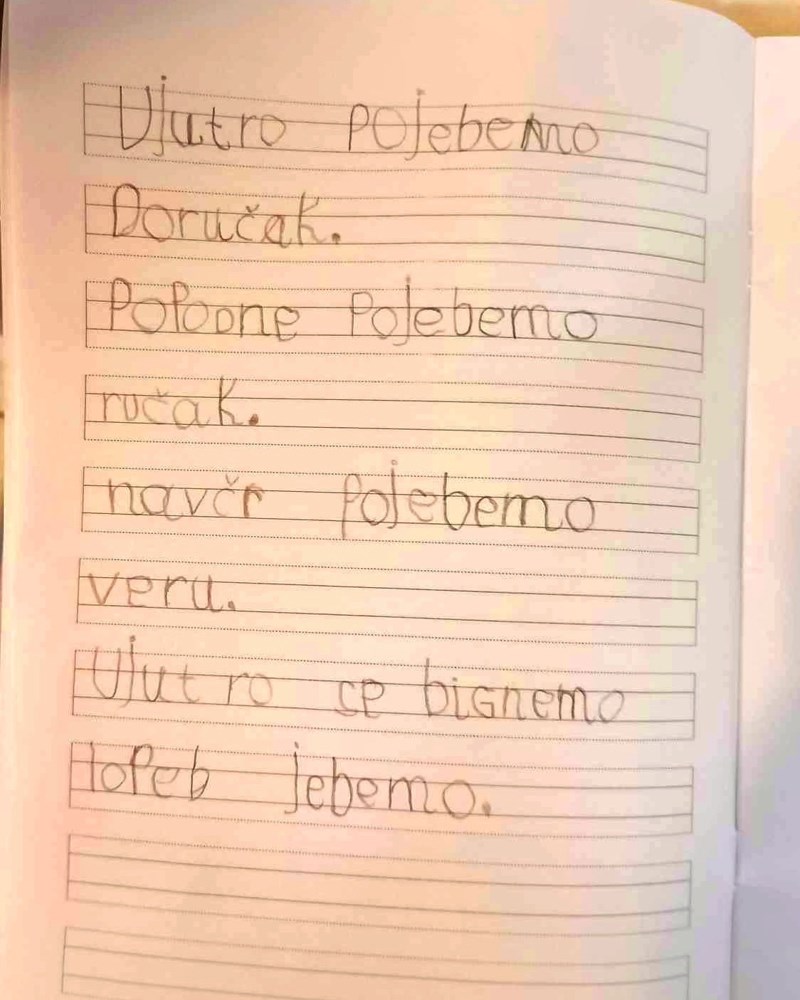 Ujutro pojebemo
Doručak.
Popodne Pojebemo
ručak.
navčr Pojebemo
veru.
Ujutro se bignemo
topeb jebemo.